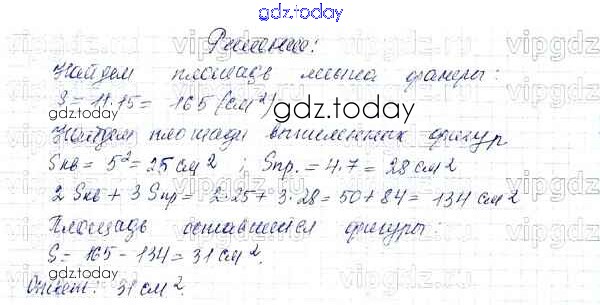 gdz.today
Решение:
Найдем площадь листа фанеры:
S = 11·15 = 165 (см²)
gdz.today
Найдем площади выпиленных фигур
Sкв = 5² = 25 см² ; Sпр. = 4·7 = 28 см²
2 Sкв + 3 Sпр = 2·25 + 3·28 = 50 + 84 = 134 см²
Площадь оставшейся фигуры:
S = 165 - 134 = 31 см².
gdz.today
Ответ: 31 см².
gdz.today